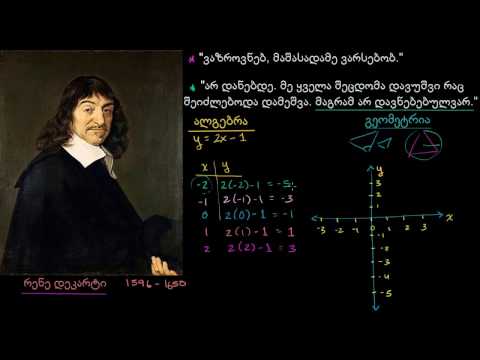 "ვაზროვნებ, მაშასადამე ვარსებობ."
"არ დანებდე. მე ყველა შეცდომა დავუშვი რაც
შეიძლებოდა დამეშვა. მაგრამ არ დავნებებულვარ."
ალგებრა
y = 2x - 1
x y
-2 2(-2)-1 = -5
-1 2(-1)-1 = -3
0 2(0)-1 = -1
1 2(1)-1 = 1
2 2(2)-1 = 3
გეომეტრია
y
3
2
1
-3 -2 -1 0 1 2 3 x
-1
-2
-3
-4
-5
რენე დეკარტი 1596 - 1650